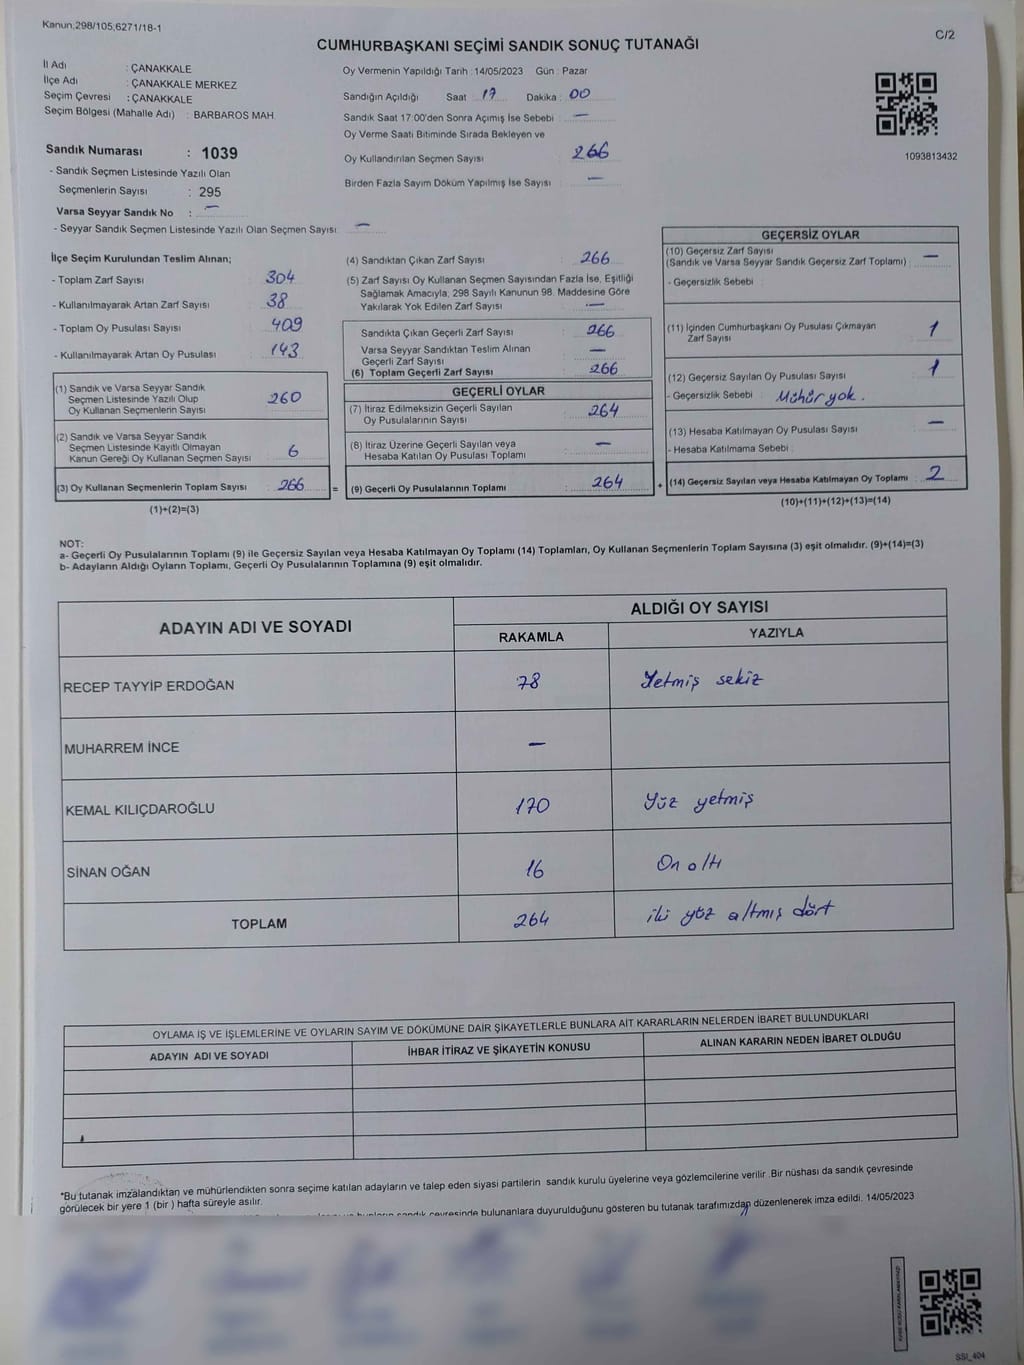 Kanun:298/105;6271/18-1
C/2
CUMHURBAŞKANI SEÇİMİ SANDIK SONUÇ TUTANAĞI
İl Adı : ÇANAKKALE
İlçe Adı : ÇANAKKALE MERKEZ
Seçim Çevresi : ÇANAKKALE
Seçim Bölgesi (Mahalle Adı) : BARBAROS MAH.
Sandık Numarası : 1039
- Sandık Seçmen Listesinde Yazılı Olan
Seçmenlerin Sayısı : 295
Varsa Seyyar Sandık No : —
- Seyyar Sandık Seçmen Listesinde Yazılı Olan Seçmen Sayısı: —
Oy Vermenin Yapıldığı Tarih :14/05/2023 Gün : Pazar
Sandığın Açıldığı Saat : 17 Dakika : 00
Sandık Saat 17:00'den Sonra Açımış İse Sebebi : —
Oy Verme Saati Bitiminde Sırada Bekleyen ve
Oy Kullandırılan Seçmen Sayısı : 266
Birden Fazla Sayım Döküm Yapılmış İse Sayısı : —
1093813432
İlçe Seçim Kurulundan Teslim Alınan;
- Toplam Zarf Sayısı : 304
- Kullanılmayarak Artan Zarf Sayısı : 38
- Toplam Oy Pusulası Sayısı : 409
- Kullanılmayarak Artan Oy Pusulası : 143
(1) Sandık ve Varsa Seyyar Sandık
Seçmen Listesinde Yazılı Olup
Oy Kullanan Seçmenlerin Sayısı : 260
(2) Sandık ve Varsa Seyyar Sandık
Seçmen Listesinde Kayıtlı Olmayan
Kanun Gereği Oy Kullanan Seçmen Sayısı : 6
(3) Oy Kullanan Seçmenlerin Toplam Sayısı : 266 =
(1)+(2)=(3)
(4) Sandıktan Çıkan Zarf Sayısı : 266
(5) Zarf Sayısı Oy Kullanan Seçmen Sayısından Fazla İse, Eşitliği
Sağlamak Amacıyla, 298 Sayılı Kanunun 98. Maddesine Göre
Yakılarak Yok Edilen Zarf Sayısı : —
Sandıkta Çıkan Geçerli Zarf Sayısı : 266
Varsa Seyyar Sandıktan Teslim Alınan
Geçerli Zarf Sayısı : —
(6) Toplam Geçerli Zarf Sayısı : 266
GEÇERLİ OYLAR
(7) İtiraz Edilmeksizin Geçerli Sayılan
Oy Pusulalarının Sayısı : 264
(8) İtiraz Üzerine Geçerli Sayılan veya
Hesaba Katılan Oy Pusulası Toplamı : —
(9) Geçerli Oy Pusulalarının Toplamı : 264 +
GEÇERSİZ OYLAR
(10) Geçersiz Zarf Sayısı
(Sandık ve Varsa Seyyar Sandık Geçersiz Zarf Toplamı) : —
- Geçersizlik Sebebi :
(11) İçinden Cumhurbaşkanı Oy Pusulası Çıkmayan
Zarf Sayısı : 1
(12) Geçersiz Sayılan Oy Pusulası Sayısı : 1
- Geçersizlik Sebebi : Mühür yok.
(13) Hesaba Katılmayan Oy Pusulası Sayısı : —
- Hesaba Katılmama Sebebi :
(14) Geçersiz Sayılan veya Hesaba Katılmayan Oy Toplamı : 2
(10)+(11)+(12)+(13)=(14)
NOT:
a- Geçerli Oy Pusulalarının Toplamı (9) ile Geçersiz Sayılan veya Hesaba Katılmayan Oy Toplamı (14) Toplamları, Oy Kullanan Seçmenlerin Toplam Sayısına (3) eşit olmalıdır. (9)+(14)=(3)
b- Adayların Aldığı Oyların Toplamı, Geçerli Oy Pusulalarının Toplamına (9) eşit olmalıdır.
ADAYIN ADI VE SOYADI
ALDIĞI OY SAYISI
RAKAMLA YAZIYLA
RECEP TAYYİP ERDOĞAN 78 Yetmiş sekiz
MUHARREM İNCE —
KEMAL KILIÇDAROĞLU 170 Yüz yetmiş
SİNAN OĞAN 16 On altı
TOPLAM 264 iki yüz altmış dört
OYLAMA İŞ VE İŞLEMLERİNE VE OYLARIN SAYIM VE DÖKÜMÜNE DAİR ŞİKAYETLERLE BUNLARA AİT KARARLARIN NELERDEN İBARET BULUNDUKLARI
ADAYIN ADI VE SOYADI İHBAR İTİRAZ VE ŞİKAYETİN KONUSU ALINAN KARARIN NEDEN İBARET OLDUĞU
*Bu tutanak imzalandıktan ve mühürlendikten sonra seçime katılan adayların ve talep eden siyasi partilerin sandık kurulu üyelerine veya gözlemcilerine verilir. Bir nüshası da sandık çevresinde
görülecek bir yere 1 (bir ) hafta süreyle asılır.
sandık çevresinde bulunanlara duyurulduğunu gösteren bu tutanak tarafımızdan düzenlenerek imza edildi. 14/05/2023
SSI_404